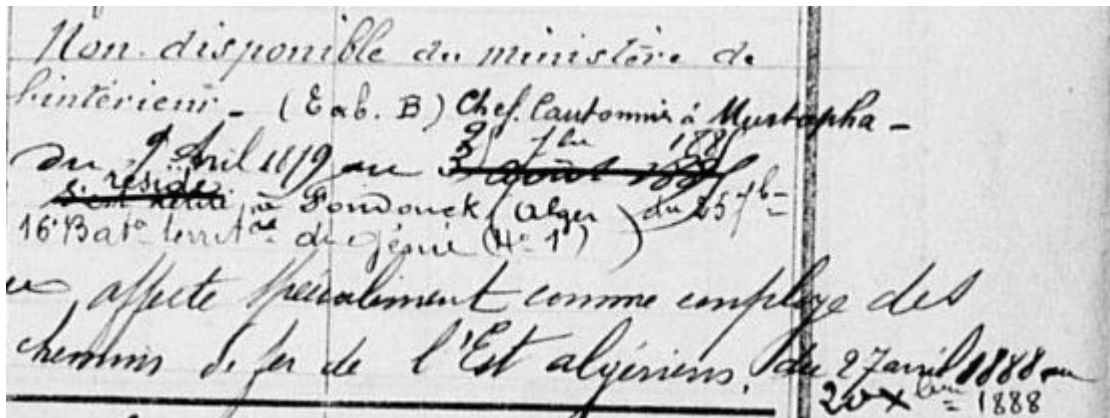 Non. disponible du ministère de
l'intérieur - (Tab. B) Chef Cantonnier à Mustapha -
25 7bre 1885
du 9 Avril 1879 au août
réside
s'est retiré à Fondouck (Alger) du 25 7bre
16e Baton territal du génie (
affecté spécialement comme employé des
chemins de fer de l'Est algériens. du 27 avril 1888 au
20 Xbre 1888